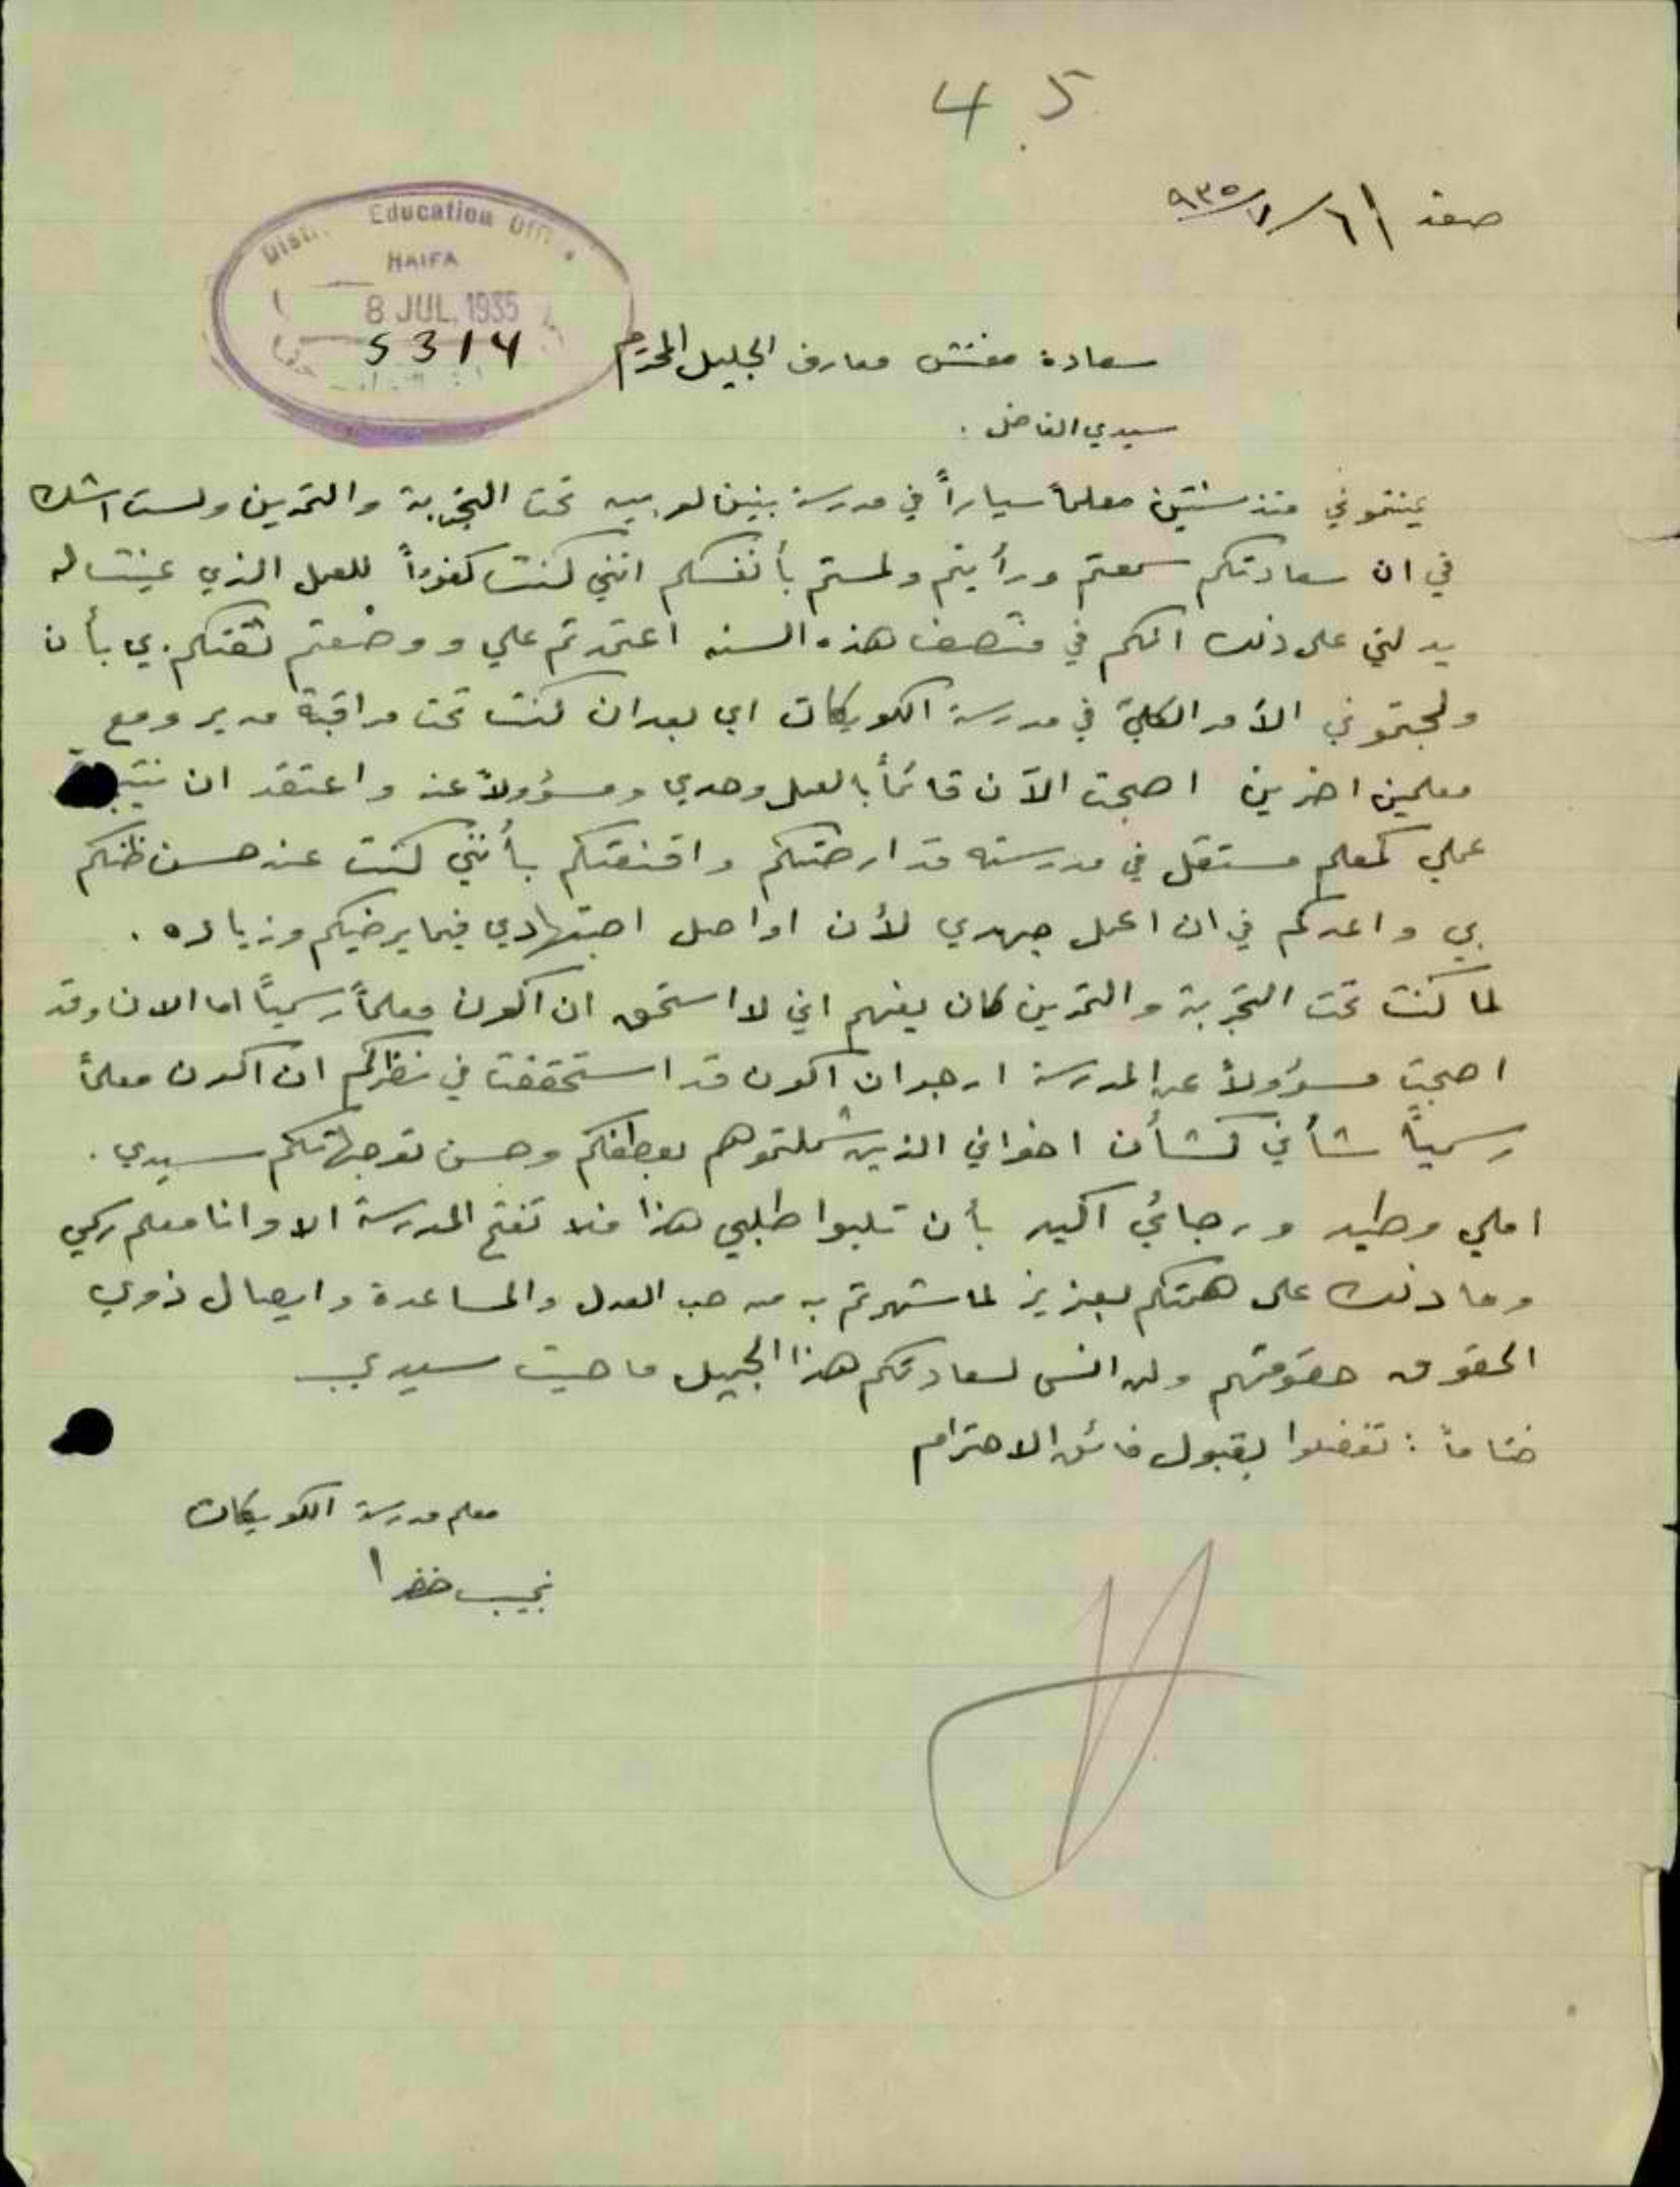 45
صفد ٦/٧/٩٣٥
Education Offi
HAIFA
8 JUL. 1935
5314
سعادة مفتش معارف الجليل المحترم
سيدي الفاضل .
عينتموني منذ سنتين معلماً سياراً في مدرسة بنين لوبيه تحت التجربة والتمرين ولست اشك
في ان سعادتكم سمعتم ورأيتم ولمستم بأنفسكم انني كنت كفوءاً للعمل الذي عينت له
يدلني على ذلك انكم في منتصف هذه السنه اعتمدتم علي ووضعتم ثقتكم بي بأن
الأمر الكلي في مدرسة الكويكات اي بعد ان كنت تحت مراقبة مدير ومع
معلمين اخرين اصبحت الآن قائماً بالعمل وحدي ومسؤولاً عنه واعتقد ان
عملي كمعلم مستقل في مدرسته قد ارضتكم واقنعتكم بأنني كنت عند حسن ظنكم
بي واعدكم في ان اعمل جهدي لأن اواصل اجتهادي فيما يرضيكم وزياده .
لما كنت تحت التجربة والتمرين كان يفهم اني لا استحق ان اكون معلماً رسمياً اما الان وقد
اصبحت مسؤولاً عن المدرسة ارجو ان اكون قد استحققت في نظركم ان اكون معلماً
رسمياً شأني كشأن اخواني الذين شملتموهم بعطفكم وحسن توجهاتكم سيدي .
املي وطيد ورجائي اكيد بأن تلبوا طلبي هذا فلا تفتح المدرسة الا وانا معلم رسمي
وما ذلك على همتكم بعزيز لما شهرتم به من حب العدل والمساعدة وايصال ذوي
الحقوق حقوقهم ولن انسى لسعادتكم هذا الجميل ما حييت سيدي
ختاماً : تفضلوا بقبول فائق الاحترام
معلم مدرسة الكويكات
نجيب خضرا